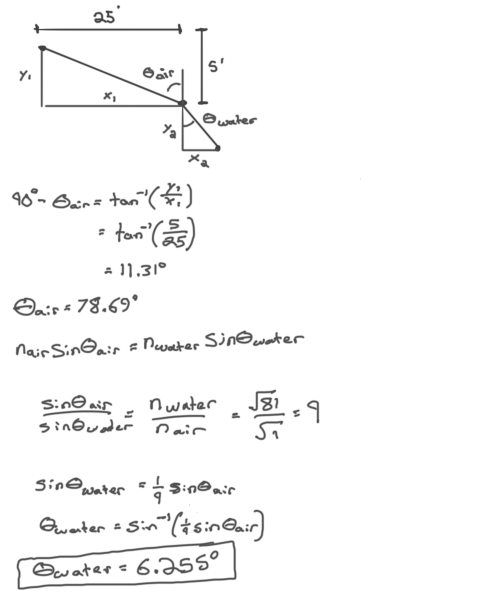 25'
5'
θair
y₁
x₁
θwater
y₂
x₂
90° - θair = tan⁻¹(y₁/x₁)
= tan⁻¹(5/25)
= 11.31°
θair = 78.69°
nair sinθair = nwater sinθwater
sinθair/sinθwater = nwater/nair = √81/√1 = 9
sinθwater = 1/9 sinθair
θwater = sin⁻¹(1/9 sinθair)
θwater = 6.255°